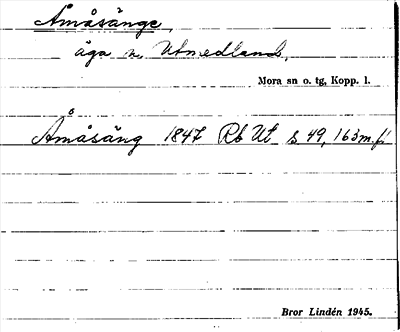 Åmåsänge,
äga n. Utmedland,
Mora sn o. tg, Kopp. l.
Åmåsäng 1847 Rb Ut s 49, 163 m. fl
Bror Lindén 1945.